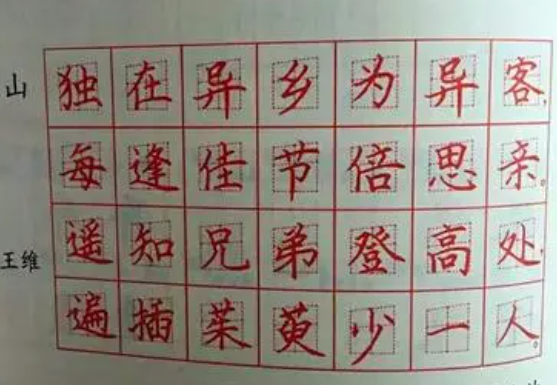 山
独在异乡为异客,
每逢佳节倍思亲。
王维
遥知兄弟登高处,
遍插茱萸少一人。